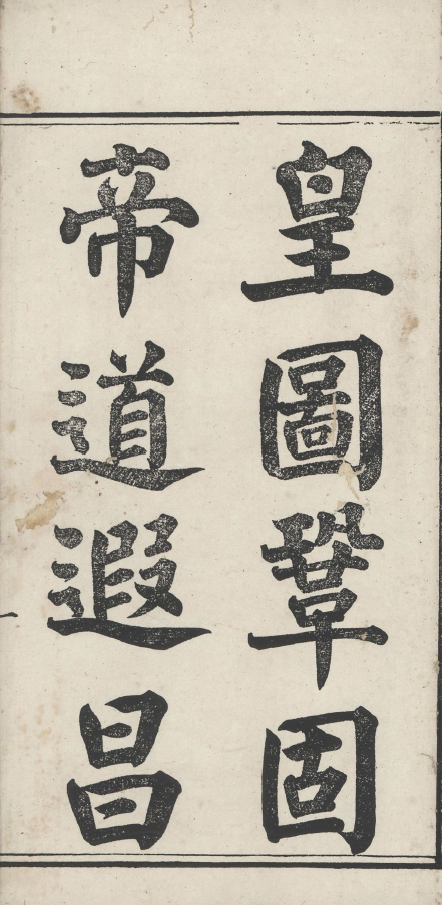 皇圖鞏固
帝道遐昌